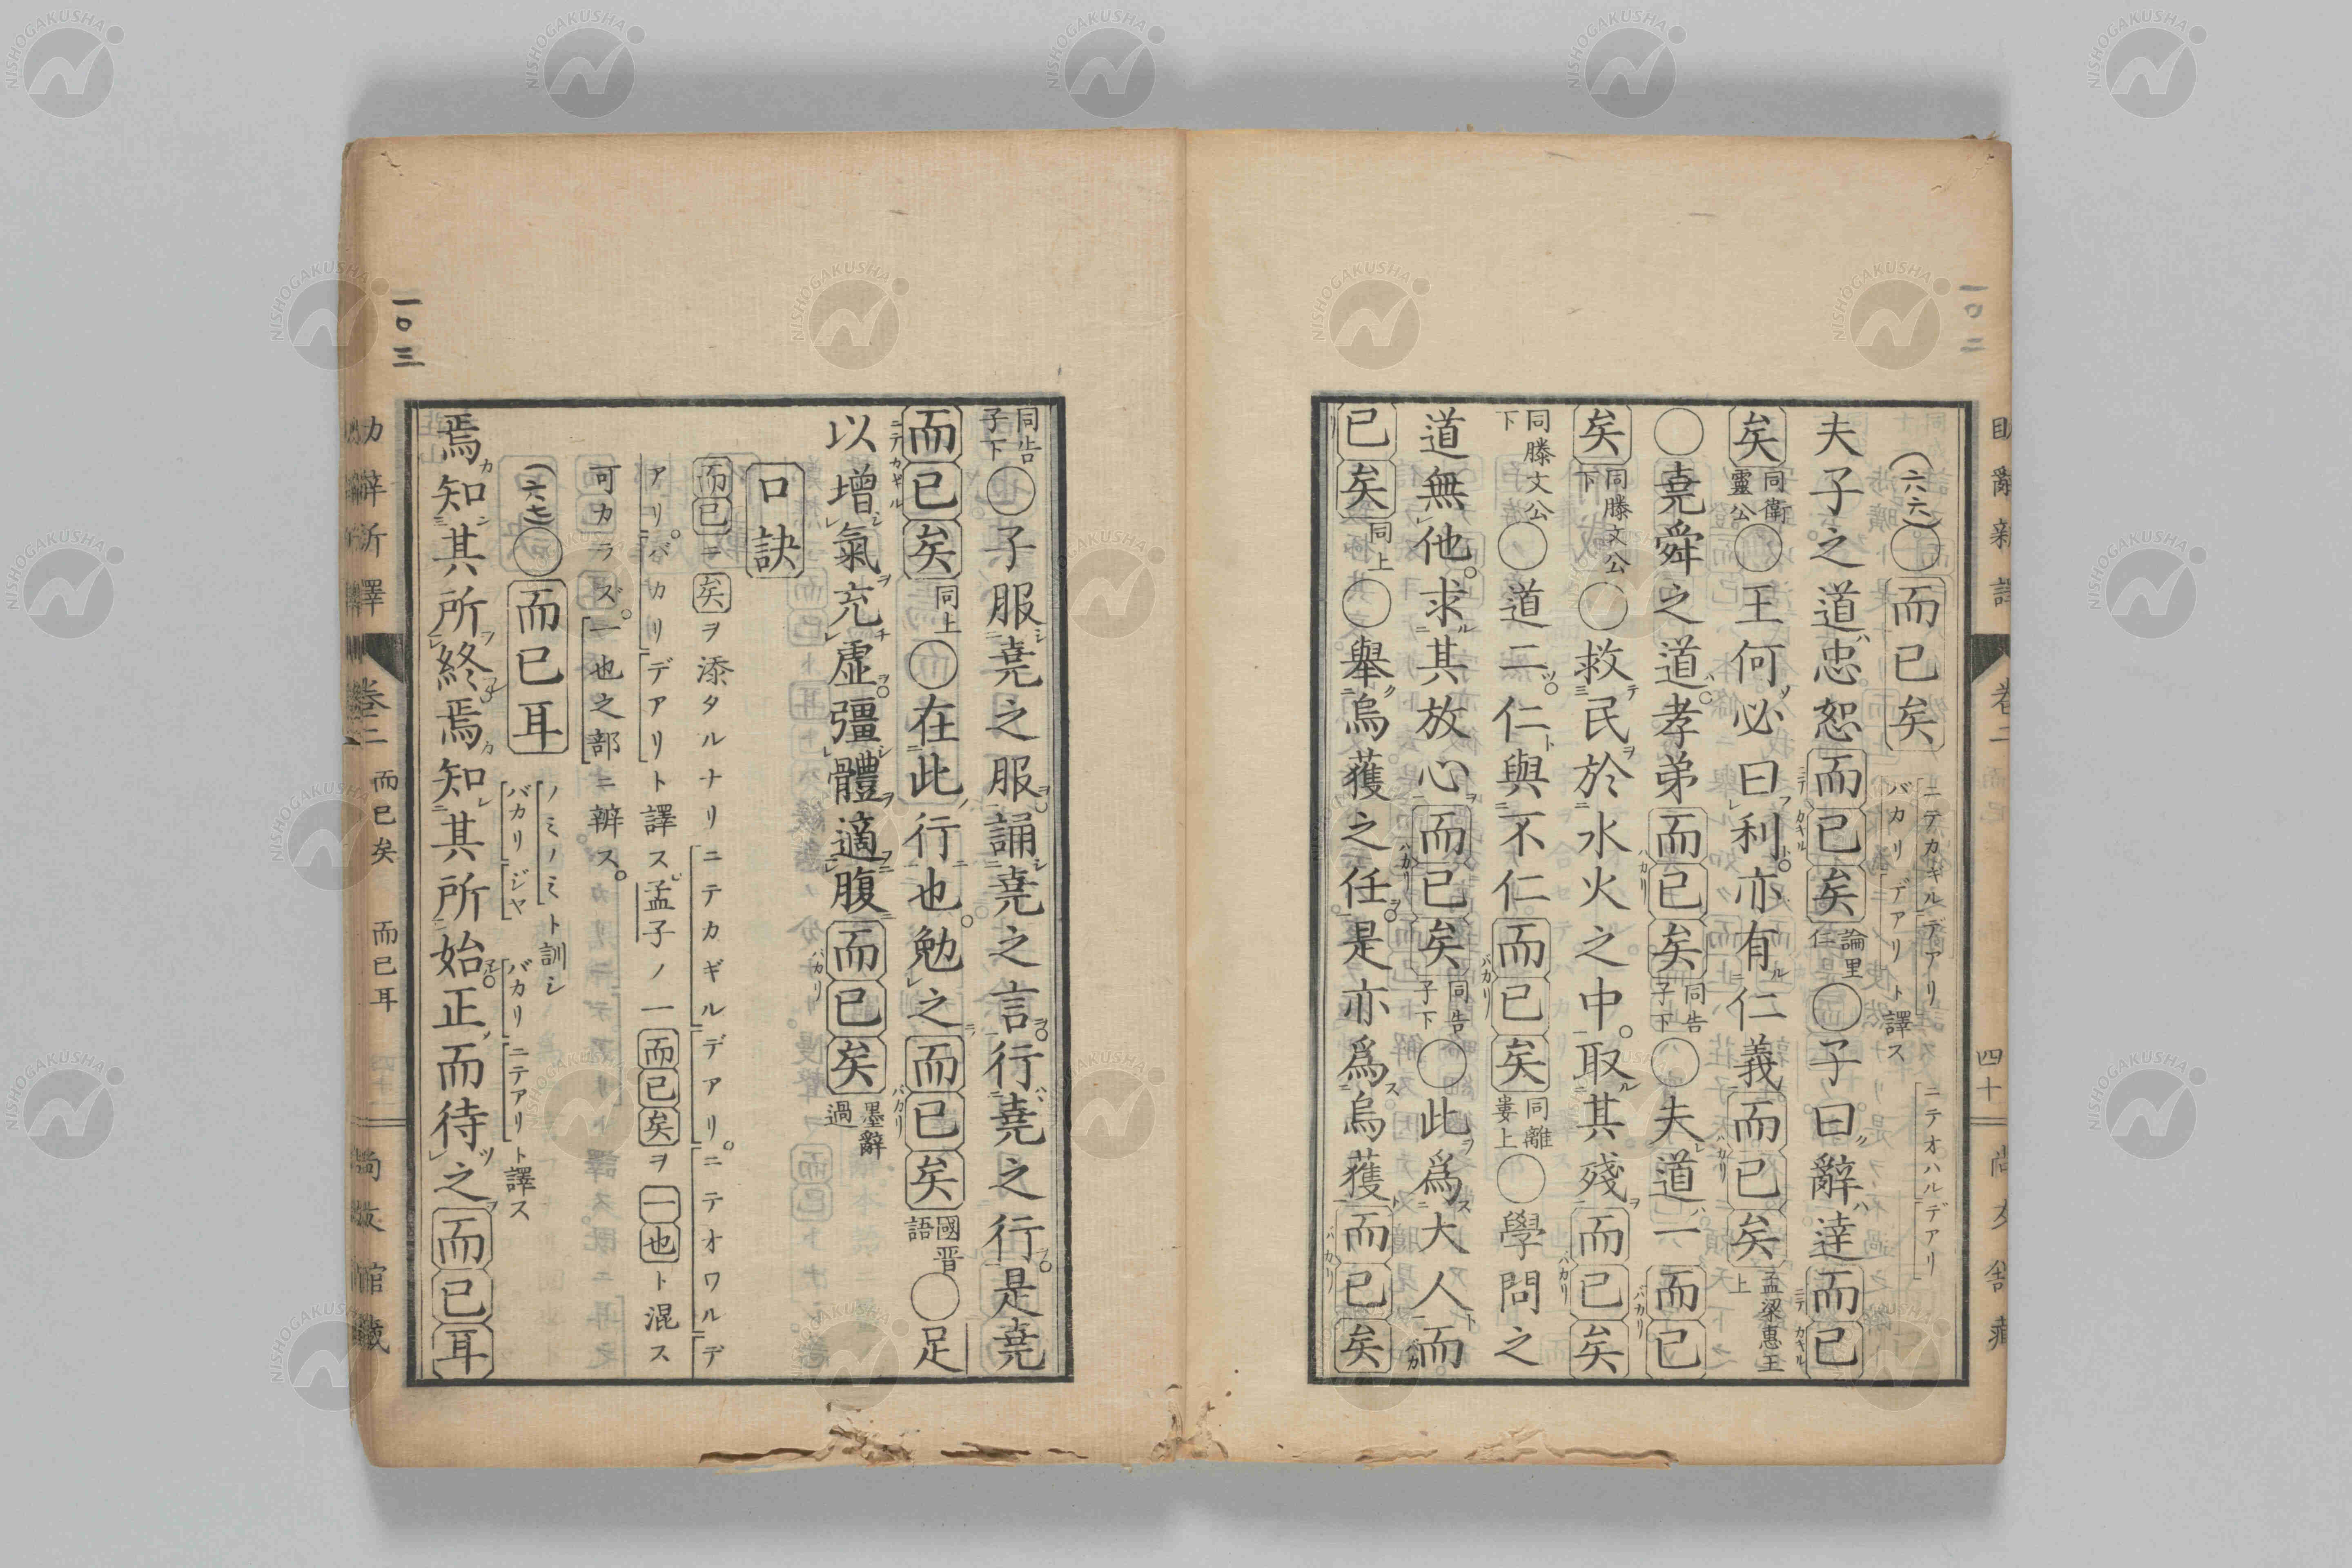 一〇二
(六六)○而已矣 ニテカギルデアリ バカリデアリト譯ス ニテオハルデアリ
夫子之道忠恕而已矣論里仁○子曰辭達而已
矣同衛靈公○王何必曰利亦有仁義而已矣孟梁惠王上
○堯舜之道孝弟而已矣同告子下○夫道一而已
矣同滕文公下○救民於水火之中取其殘而已矣
同滕文公下○道二仁與不仁而已矣同離婁上○學問之
道無他求其放心而已矣同告子下○此爲大人而
已矣同上○舉烏獲之任是亦爲烏獲而已矣
同告子下○子服堯之服誦堯之言行堯之行是堯
而已矣同上○在此行也勉之而已矣國晋語○足
以增氣充虛彊體適腹而已矣墨辭過
口訣
而已ニ矣ヲ添タルナリニテカギルデアリ。ニテオワルデ
アリ。バカリデアリト譯ス。孟子ノ一而已矣ヲ一也ト混ス
可カラズ。一也之部ニ辨ス。
(六七)○而已耳 ノミノミト訓シ バカリジヤ バカリニテアリト譯ス
焉知其所終焉知其所始正而待之而已耳
卷二 而已矣 而已耳
一〇三
NISHOGAKUSHA